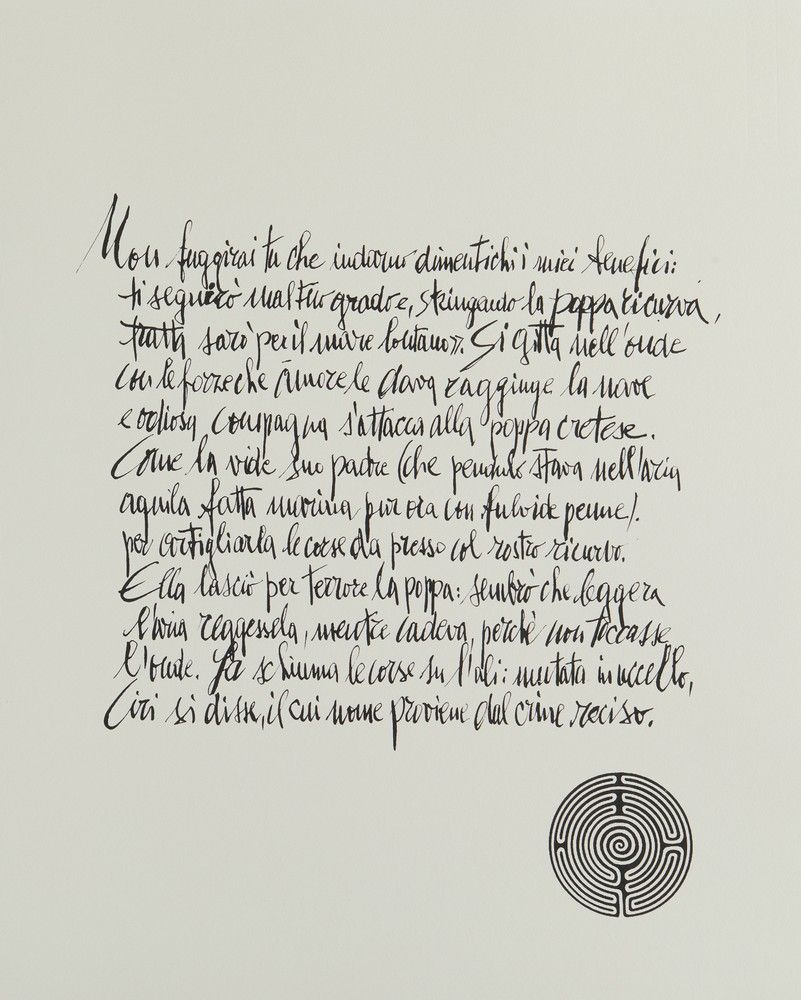 Non fuggirai tu che indarno dimentichi i miei benefici:
ti seguirò mal tuo grado e, stringendo la poppa ricurva,
tratta sarò per il mare lontano». Si gitta nell'onde
con le forze che Amore le dava raggiunge la nave
e odiosa compagna s'attacca alla poppa cretese.
Come la vide suo padre (che pendulo stava nell'aria
aquila fatta marina pur ora con fulvide penne).
per artigliarla le corse da presso col rostro ricurvo.
Ella lasciò per terrore la poppa: sembrò che leggera
l'aria reggessela, mentre cadeva, perchè non toccasse
l'onde. La schiuma le corse su l'ali: mutata in uccello,
Ciri si disse, il cui nome proviene dal crine reciso.